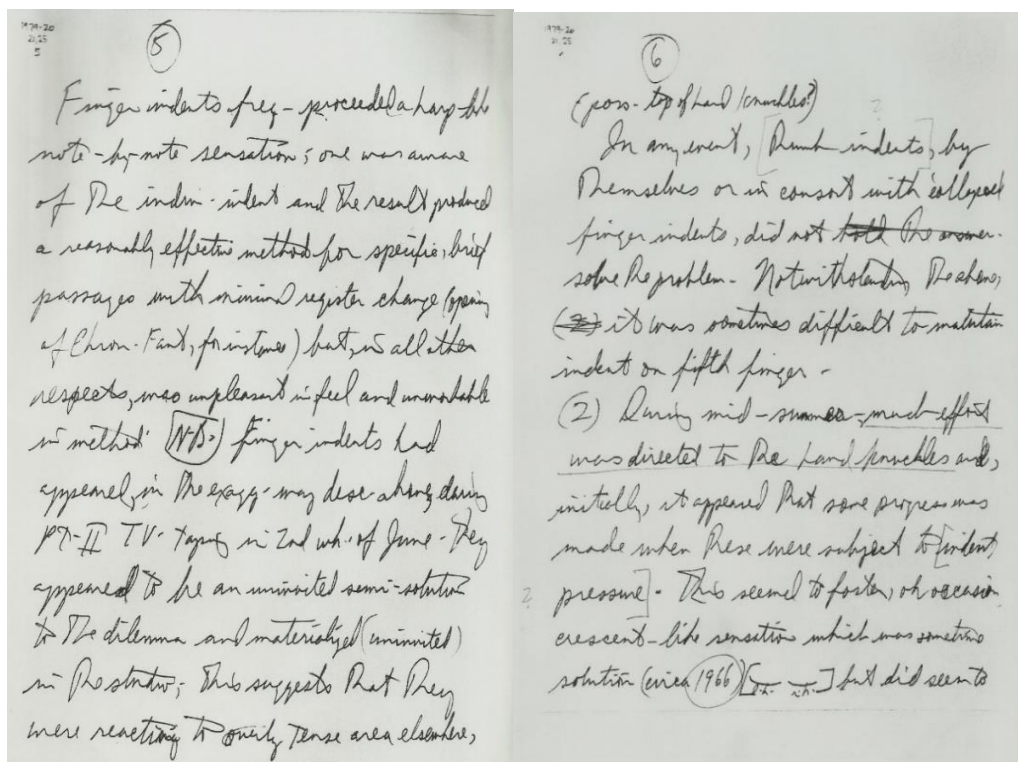 1979-20
21,25
5
5
Finger indents freq - proceeded a harp-like
note-by-note sensation; one was aware
of the indiv. indent and the result produced
a reasonably effective method for specific, brief
passages with minimal register change (opening
of Chrom. Fant, for instance) but, in all other
respects, was unpleasant in feel and unworkable
in method. N.B.) Finger indents had
appeared, in the exagg- way desc. above, during
PT-II TV- taping in 2nd wk. of June - They
appeared to be an uninvited semi-solution
to the dilemma and materialized (uninvited)
in the studio; This suggests that they
were reacting to overly tense area elsewhere,
1979-20
21,25
6
(poss- top of hand /knuckles?)
?
In any event, [Thumb indents], by
themselves or in consort with collapsed
finger indents, did not hold the answer.
solve the problem. Notwithstanding the above,
it was sometimes difficult to maintain
indent on fifth finger -
(2) During mid-summer, much effort
was directed to the hand knuckles and,
initially, it appeared that some progress was
made when these were subject to [indent
? pressure]. This seemed to foster, on occasion
crescent-like sensation which was sometime
solution (circa 1966) but did seem to